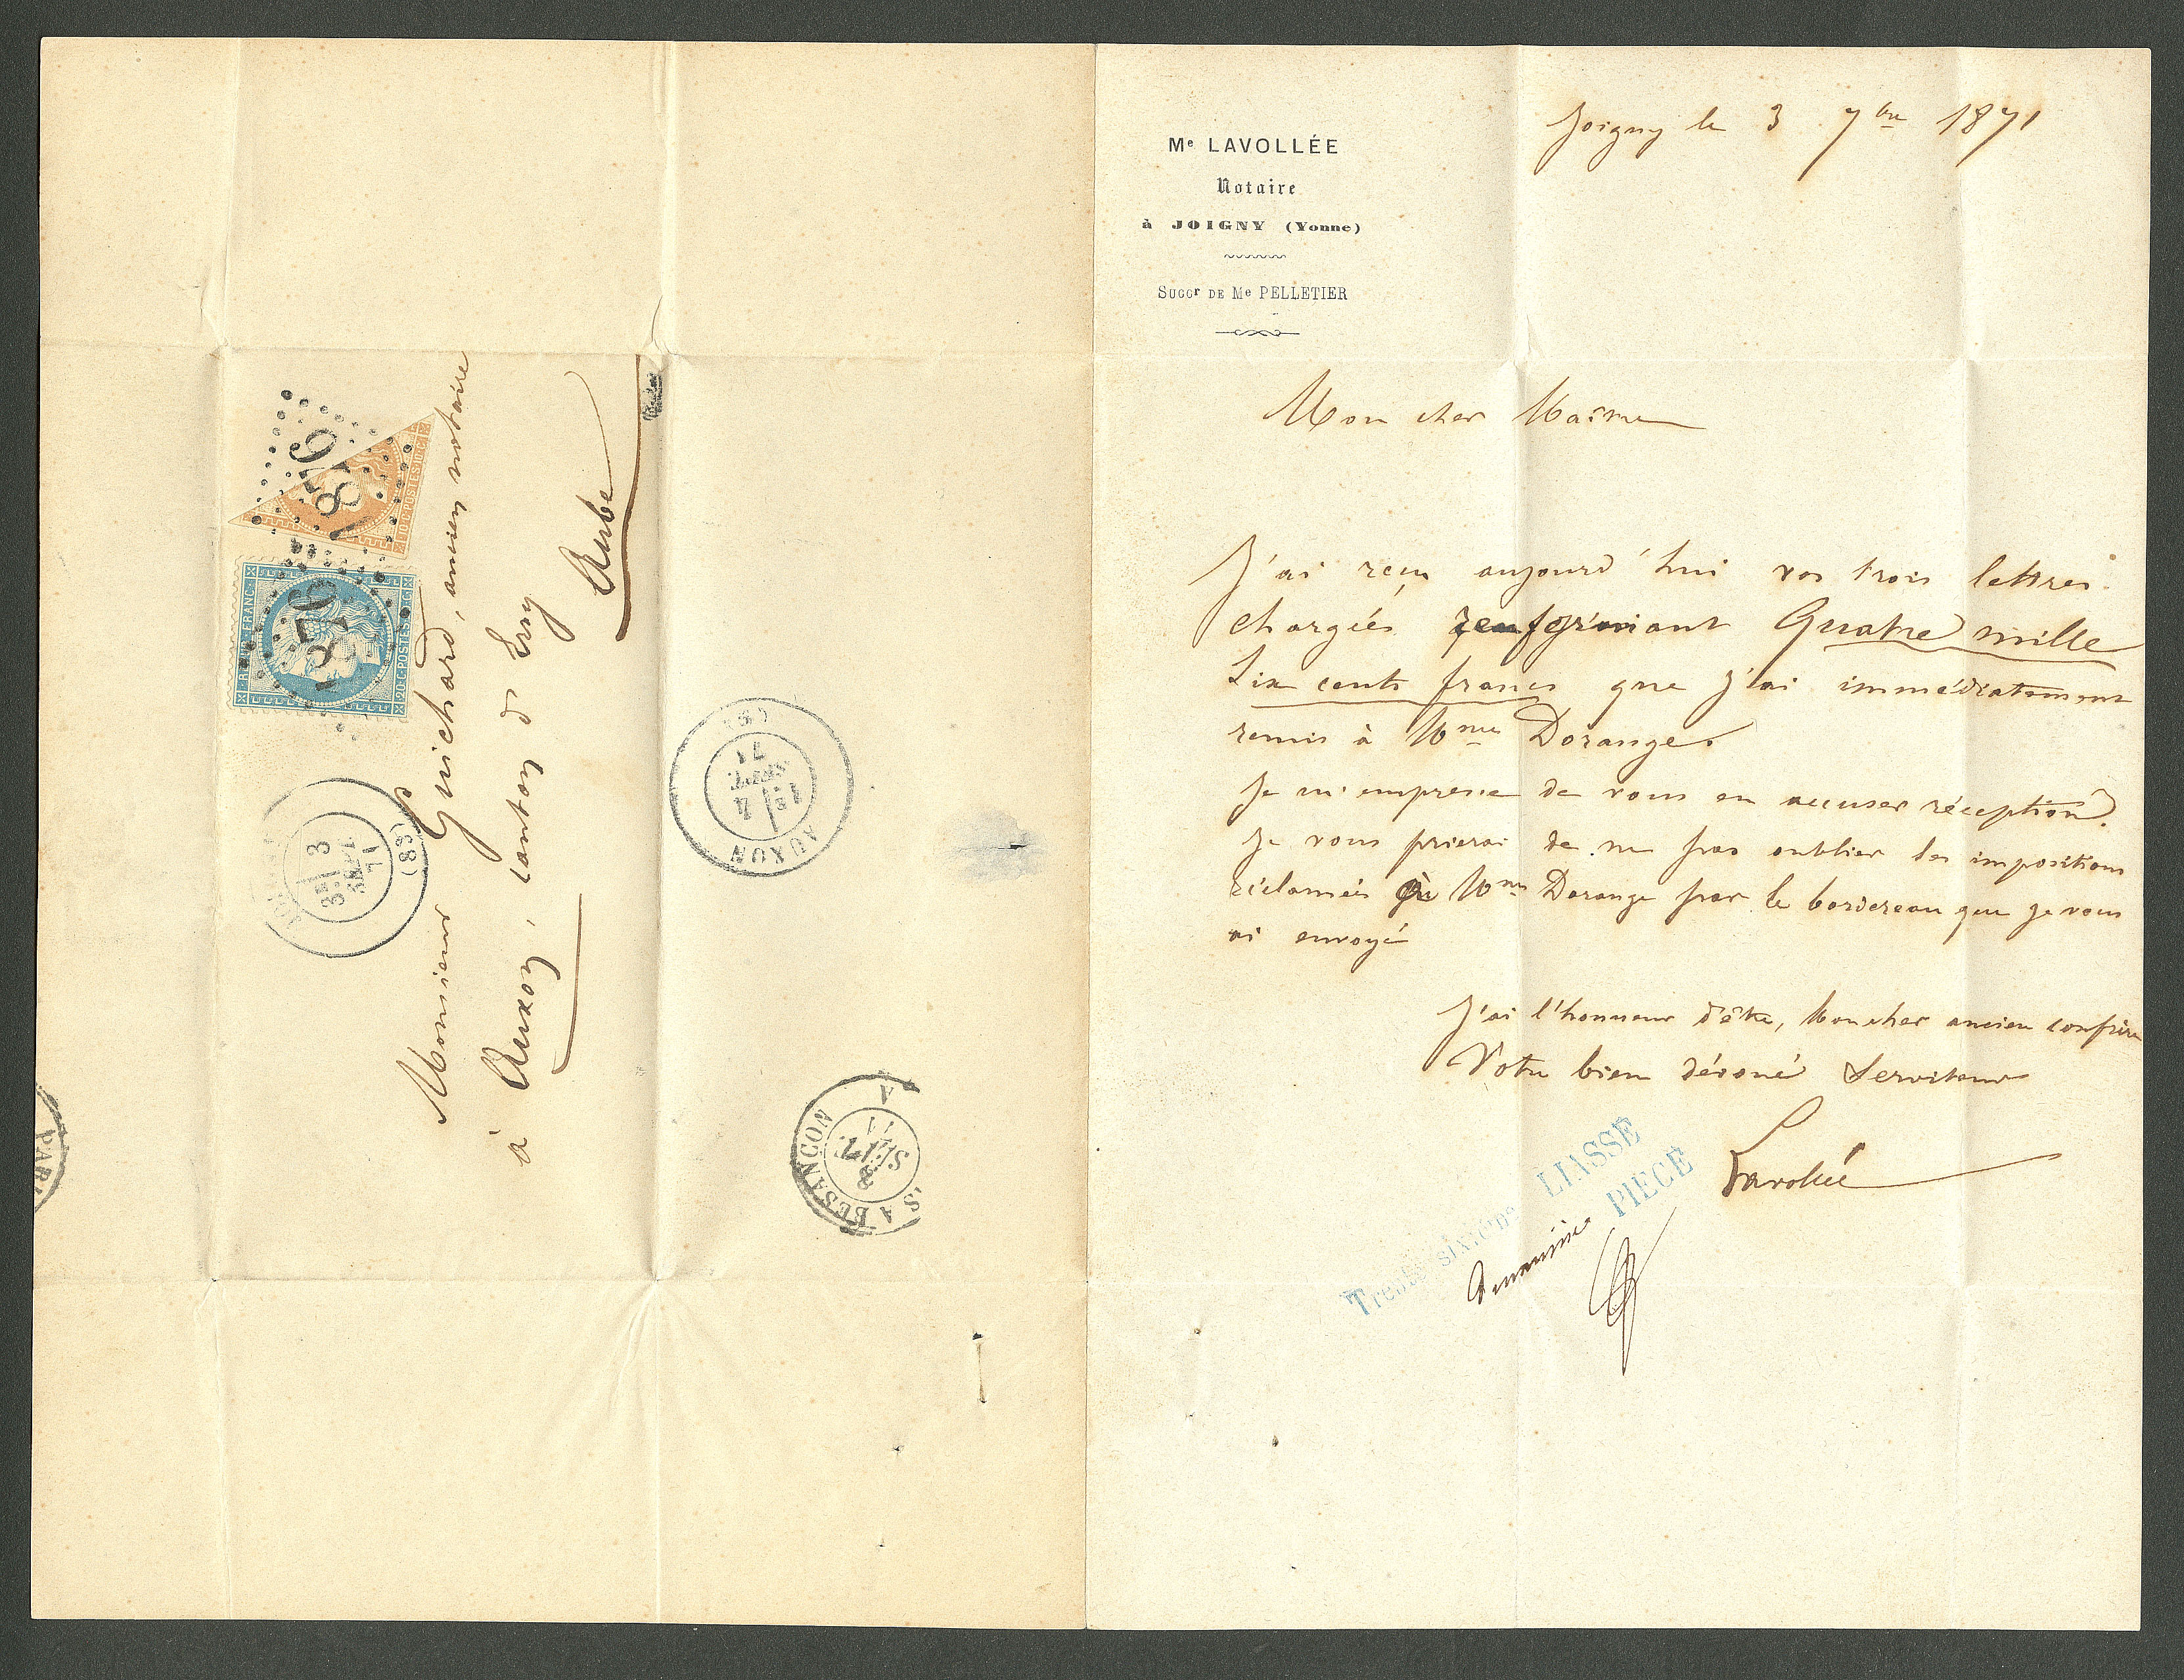 Mᵉ LAVOLLÉE
Notaire
à JOIGNY (Yonne)
Succʳ DE Mᵉ PELLETIER
Joigny le 3 7bre 1871
Mon cher Maitre
J'ai reçu aujourd'hui vos trois lettres
chargées renfermant Quatre mille
Six cents francs que j'ai immédiatement
remis à Mme Dorange.
Je m'empresse de vous en accuser réception.
Je vous prierai de ne pas oublier les impositions
réclamées à Mme Dorange par le bordereau que je vous
ai envoyé
J'ai l'honneur d'être, Mon cher ancien confrère
Votre bien dévoué Serviteur
Lavollée
LIASSE
PIECE
Trente sixième
Monsieur Guichard, ancien notaire
à Auxon, canton d'Ervy
Aube
1876
1876
10 C. POSTES 10 C.
REPUB. FRANC.
20 C. POSTES 20 C.
3E 3
SEPT.
71
(83)
AUXON
4
SEPT.
71
S A BESANCON
3
SEPT.
71
PARI